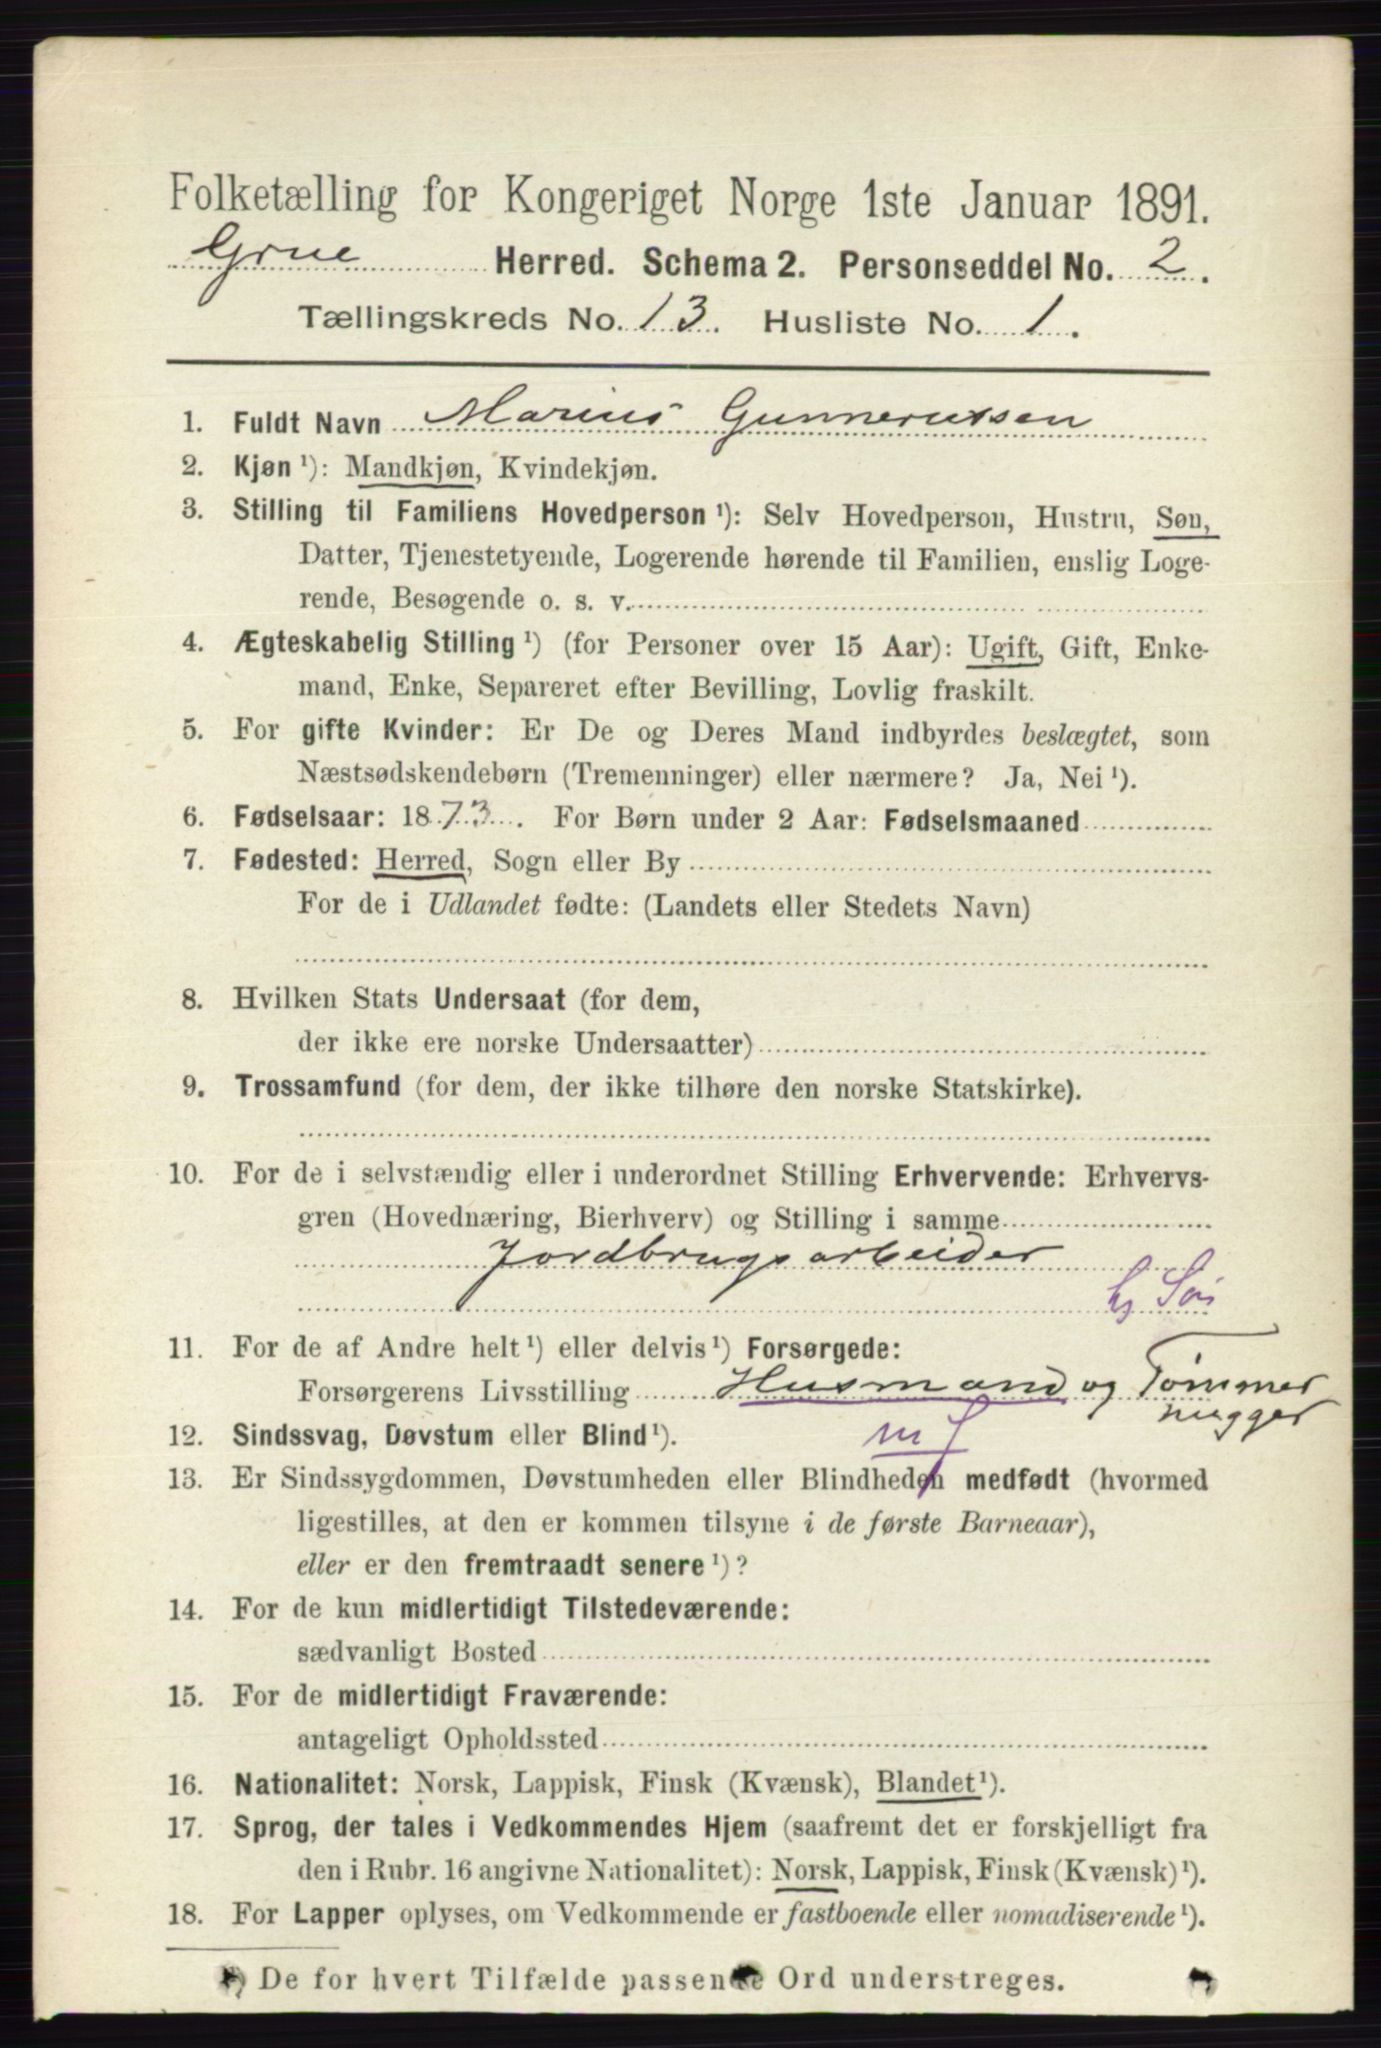 Folketælling for Kongeriget Norge 1ste Januar 1891.
Grue Herred. Schema 2. Personseddel No. 2.
Tællingskreds No. 13. Husliste No. 1.
1. Fuldt Navn Marius Gunnerussen
2. Kjøn ¹): Mandkjøn, Kvindekjøn.
3. Stilling til Familiens Hovedperson ¹): Selv Hovedperson, Hustru, Søn,
Datter, Tjenestetyende, Logerende hørende til Familien, enslig Loge-
rende, Besøgende o. s. v.
4. Ægteskabelig Stilling ¹) (for Personer over 15 Aar): Ugift, Gift, Enke-
mand, Enke, Separeret efter Bevilling, Lovlig fraskilt.
5. For gifte Kvinder: Er De og Deres Mand indbyrdes beslægtet, som
Næstsødskendebørn (Tremenninger) eller nærmere? Ja, Nei ¹).
6. Fødselsaar: 1873. For Børn under 2 Aar: Fødselsmaaned
7. Fødested: Herred, Sogn eller By
For de i Udlandet fødte: (Landets eller Stedets Navn)
8. Hvilken Stats Undersaat (for dem,
der ikke ere norske Undersaatter)
9. Trossamfund (for dem, der ikke tilhøre den norske Statskirke).
10. For de i selvstændig eller i underordnet Stilling Erhvervende: Erhvervs-
gren (Hovednæring, Bierhverv) og Stilling i samme
Jordbrugsarbeider
11. For de af Andre helt ¹) eller delvis ¹) Forsørgede:
Forsørgerens Livsstilling Husmand og Tømmer
hugger
12. Sindssvag, Døvstum eller Blind ¹).
13. Er Sindssygdommen, Døvstumheden eller Blindheden medfødt (hvormed
ligestilles, at den er kommen tilsyne i de første Barneaar),
eller er den fremtraadt senere ¹)?
14. For de kun midlertidigt Tilstedeværende:
sædvanligt Bosted
15. For de midlertidigt Fraværende:
antageligt Opholdssted
16. Nationalitet: Norsk, Lappisk, Finsk (Kvænsk), Blandet ¹).
17. Sprog, der tales i Vedkommendes Hjem (saafremt det er forskjelligt fra
den i Rubr. 16 angivne Nationalitet): Norsk, Lappisk, Finsk (Kvænsk) ¹).
18. For Lapper oplyses, om Vedkommende er fastboende eller nomadiserende ¹).
¹) De for hvert Tilfælde passende Ord understreges.